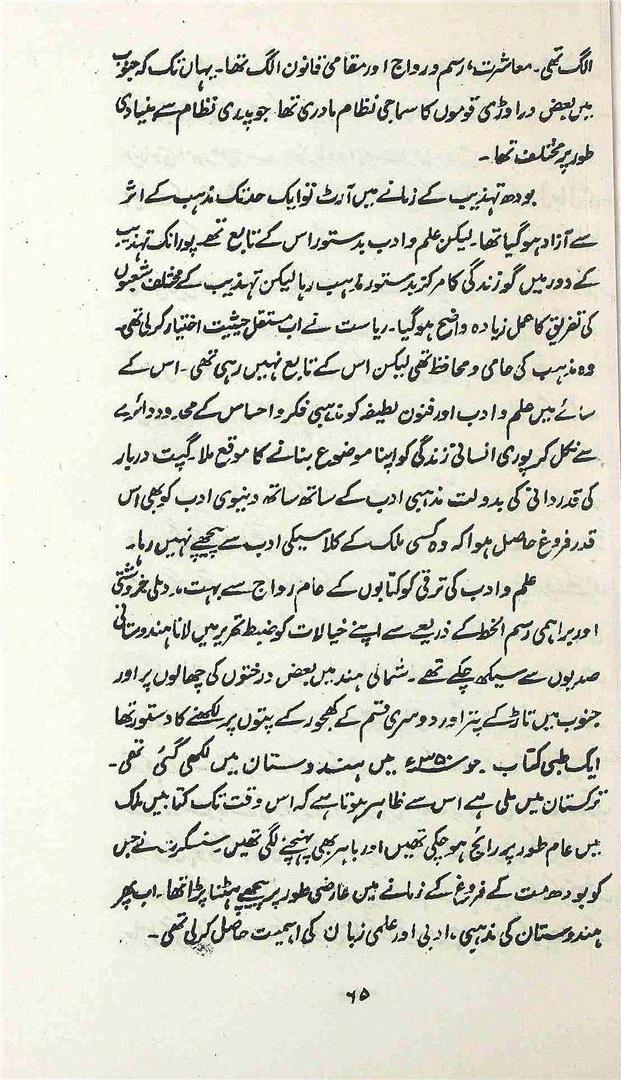 الگ تھی۔ معاشرت، رسم و رواج اور مقامی قانون الگ تھا۔ یہاں تک کہ جنوب
میں بعض دراوڑی قوموں کا سماجی نظام مادری تھا جو پدری نظام سے بنیادی
طور پر مختلف تھا۔
بودھ تہذیب کے زمانے میں آرٹ تو ایک حد تک مذہب کے اثر
سے آزاد ہو گیا تھا۔ لیکن علم و ادب بدستور اس کے تابع تھے۔ پورانک تہذیب
کے دور میں گو زندگی کا مرکز بدستور مذہب رہا لیکن تہذیب کے مختلف شعبوں
کی تفریق کا عمل زیادہ واضح ہو گیا۔ ریاست نے اب مستقل حیثیت اختیار کر لی تھی۔
وہ مذہب کی حامی و محافظ تھی لیکن اس کے تابع نہیں رہی تھی۔ اس کے
سائے میں علم و ادب اور فنون لطیفہ کو مذہبی فکر و احساس کے محدود دائرے
سے نکل کر پوری انسانی زندگی کو اپنا موضوع بنانے کا موقع ملا۔ گپت دربار
کی قدردانی کی بدولت مذہبی ادب کے ساتھ ساتھ دینوی ادب کو بھی اس
قدر فروغ حاصل ہوا کہ وہ کسی ملک کے کلاسیکی ادب سے پیچھے نہیں رہا۔
علم و ادب کی ترقی کو کتابوں کے عام رواج سے بہت مدد ملی خروشتی
اور براہمی رسم الخط کے ذریعے سے اپنے خیالات کو ضبط تحریر میں لانا ہندوستانی
صدیوں سے سیکھ چکے تھے۔ شمالی ہند میں بعض درختوں کی چھالوں پر اور
جنوب میں تاڑ کے پتر اور دوسری قسم کے کھجور کے پتوں پر لکھنے کا دستور تھا
ایک طبی کتاب جو ۳۵۰ء میں ہندوستان میں لکھی گئی تھی۔
ترکستان میں ملی ہے اس سے ظاہر ہوتا ہے کہ اس وقت تک کتابیں ملک
میں عام طور پر رائج ہو چکی تھیں اور باہر بھی پہنچنے لگی تھیں۔ سنسکرت نے جس
کو بودھ مت کے فروغ کے زمانے میں عارضی طور پر پیچھے ہٹنا پڑا تھا۔ اب پھر
ہندوستان کی مذہبی، ادبی اور علمی زبان کی اہمیت حاصل کر لی تھی۔
۶۵